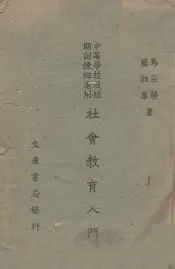 馬宗榮
藍淑華
著
中等學校及短
期訓練班適用
社會教育入門
文通書局發行